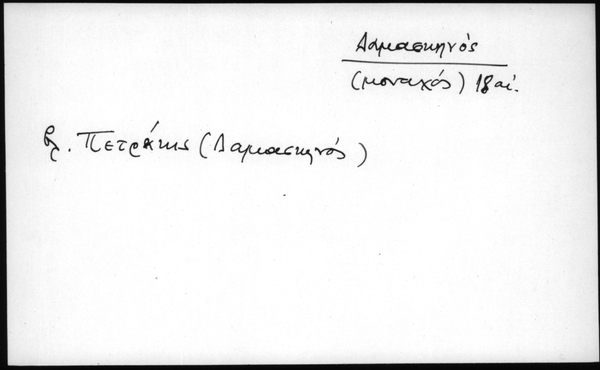 Δαμασκηνός
(μοναχός) 18 αἰ.
βλ. Πετράκης (Δαμασκηνός)